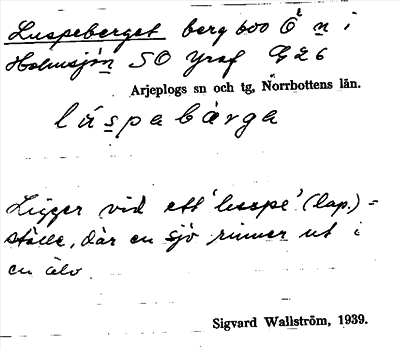 Luspeberget berg 600 Ö n i
Holmsjön SO Graf G 26
Arjeplogs sn och tg, Norrbottens län.
lúspabärga
Ligger vid ett 'luspe' (lap.) =
ställe, där en sjö rinner ut i
en älv.
Sigvard Wallström, 1939.